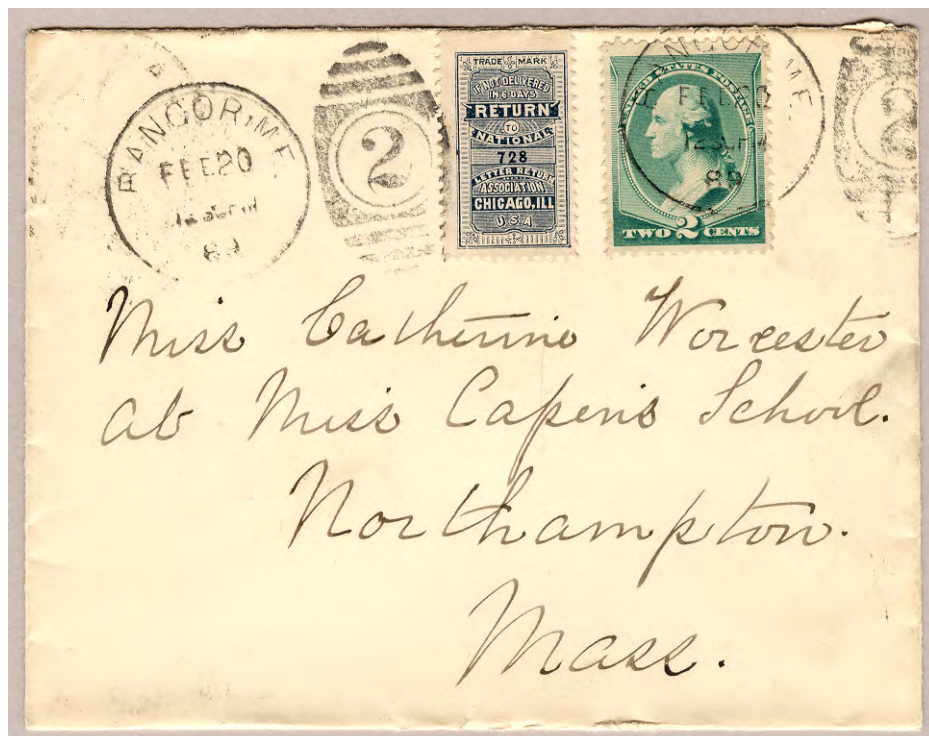 BANGOR, ME
FEB 20
12 30 PM
89
2
TRADE MARK
IF NOT DELIVERED
IN 6 DAYS
RETURN
TO
NATIONAL
728
LETTER RETURN
ASSOCIATION
CHICAGO, ILL
U.S.A.
UNITED STATES POSTAGE
TWO 2 CENTS
BANGOR, ME
FEB 20
12 30 PM
89
2
Miss Catherine Worcester
At Miss Capen's School.
Northampton.
Mass.